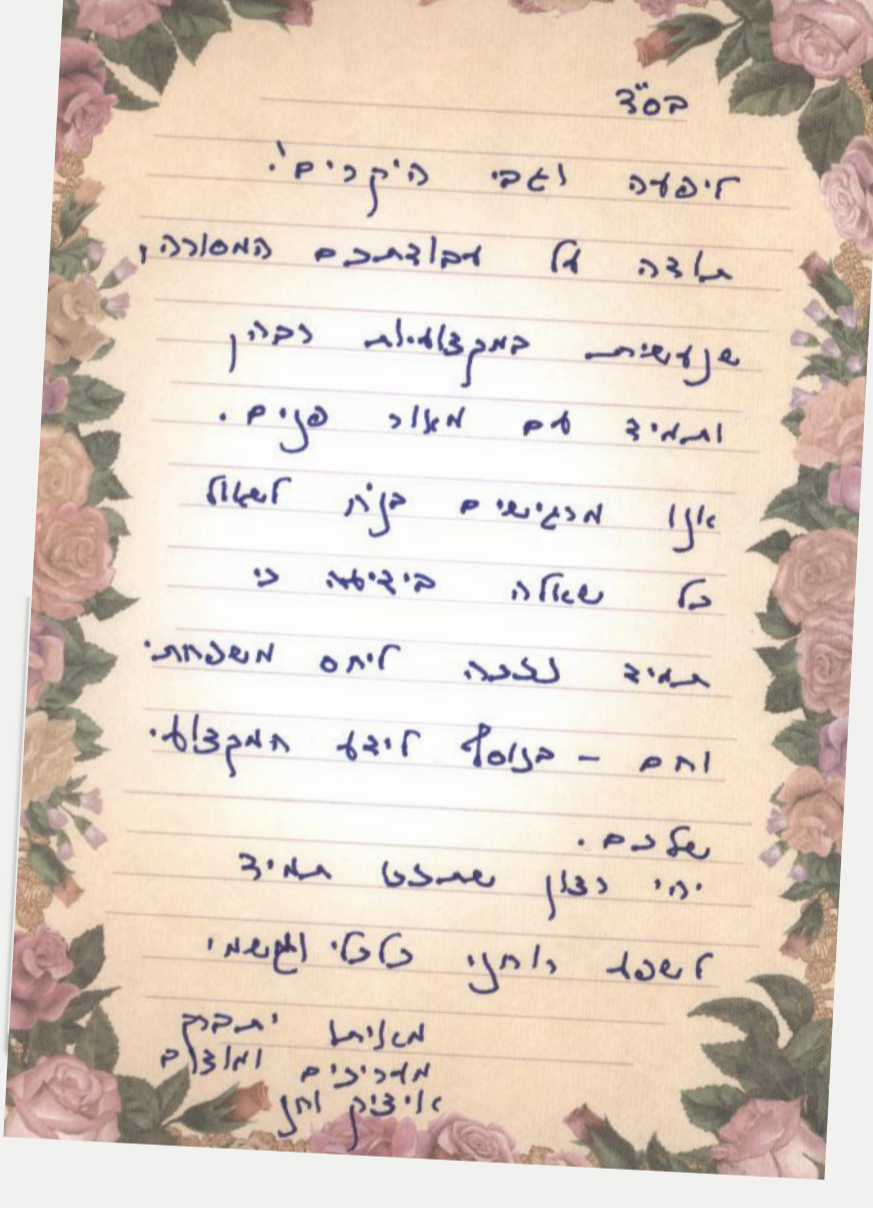 בס"ד
ליפעה וגבי היקרים!
תודה על עבודתכם המסורה,
שנעשית במקצועיות רבה
ותמיד עם מאור פנים.
אנו מרגישים בנוח לשאול
כל שאלה בידיעה כי
תמיד נזכה ליחס משפחתי
וחם - בנוסף לידע המקצועי
שלכם.
יהי רצון שתזכו תמיד
לשפע רוחני כלכלי וגשמי
מאיתו יתברך
מעריכים ומודים
איציק וחן